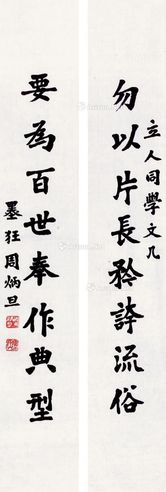 立人同學文几
勿以片長矜誇流俗
要為百世奉作典型
墨狂周炳旦